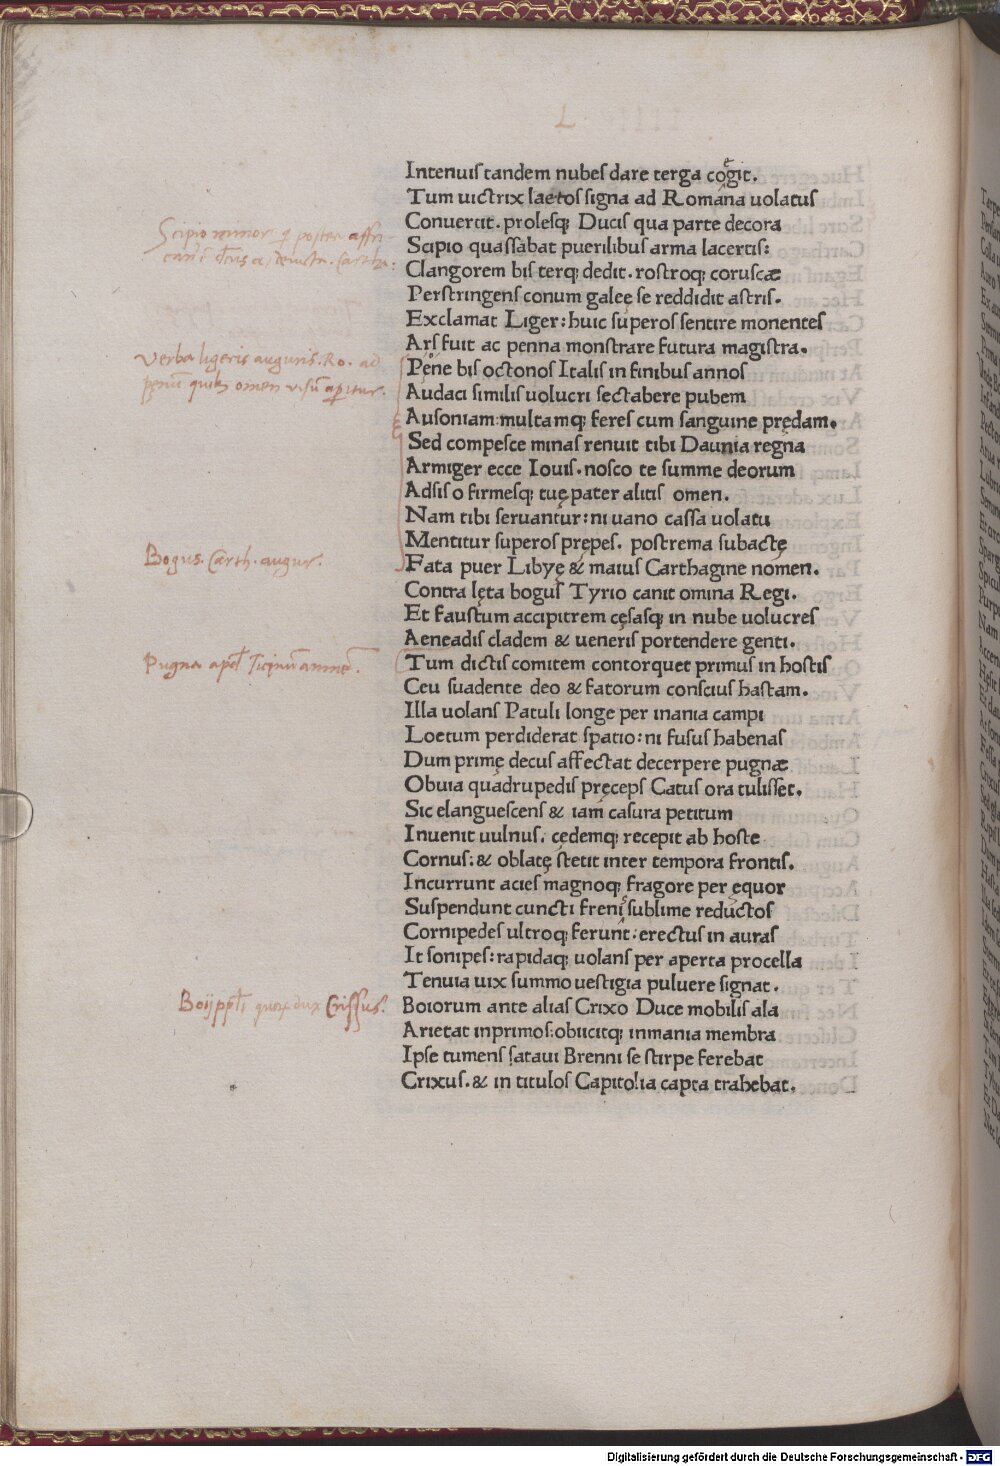 L
Intenuiſ tandem nubeſ dare terga cogit.
Tum uictrix laetoſ ſigna ad Romana uolatuſ
Conuertit. proleſq; Duciſ qua parte decora
Scipio quaſſabat puerilibuſ arma lacertiſ:
Clangorem biſ terq; dedit. roſtroq; coruſcæ
Perſtringenſ conum galeę ſe reddidit aſtriſ.
Exclamat Liger: huic ſuperoſ ſentire monenteſ
Arſ fuit ac penna monſtrare futura magiſtra.
Pęne biſ octonoſ Italiſ in finibuſ annoſ
Audaci ſimiliſ uolucri ſectabere pubem
Auſoniam: multamq; fereſ cum ſanguine prędam.
Sed compeſce minaſ renuit tibi Daunia regna
Armiger ecce Iouiſ. noſco te ſumme deorum
Adſiſ o firmeſq; tuę pater alitiſ omen.
Nam tibi ſeruantur: ni uano caſſa uolatu
Mentitur ſuperoſ prępeſ. poſtrema ſubactę
Fata puer Libyę & maiuſ Carthagine nomen.
Contra lęta boguſ Tyrio canit omina Regi.
Et fauſtum accipitrem cęſaſq; in nube uolucreſ
Aeneadiſ cladem & ueneriſ portendere genti.
Tum dictiſ comitem contorquet primuſ in hoſtiſ
Ceu ſuadente deo & fatorum conſciuſ haſtam.
Illa uolanſ Patuli longe per inania campi
Loetum perdiderat ſpatio: ni fuſuſ habenaſ
Dum primę decuſ affectat decerpere pugnæ
Obuia quadrupediſ pręcepſ Catuſ ora tuliſſet.
Sic elangueſcenſ & iam caſura petitum
Inuenit uulnuſ. cędemq; recepit ab hoſte
Cornuſ: & oblatę ſtetit inter tempora frontiſ.
Incurrunt acieſ magnoq; fragore per ęquor
Suſpendunt cuncti freniſ ſublime reductoſ
Cornipedeſ ultroq; ferunt: erectuſ in auraſ
It ſonipeſ: rapidaq; uolanſ per aperta procella
Tenuia uix ſummo ueſtigia puluere ſignat.
Boiorum ante aliaſ Crixo Duce mobiliſ ala
Arietat inprimoſ: obiicitq; inmania membra
Ipſe tumenſ ſataui Brenni ſe ſtirpe ferebat
Crixuſ. & in tituloſ Capitolia capta trahebat.
Scipio minor q poſtea affri-
Verba ligeris auguris. Ro. ad
penũ quibus omen viſũ aperitur.
Bogus. Carth. augur.
Pugna apd Ticinũ amnẽ.
Boij ppłi quorum dux Criſſus.
Digitalisierung gefördert durch die Deutsche Forschungsgemeinschaft - DFG